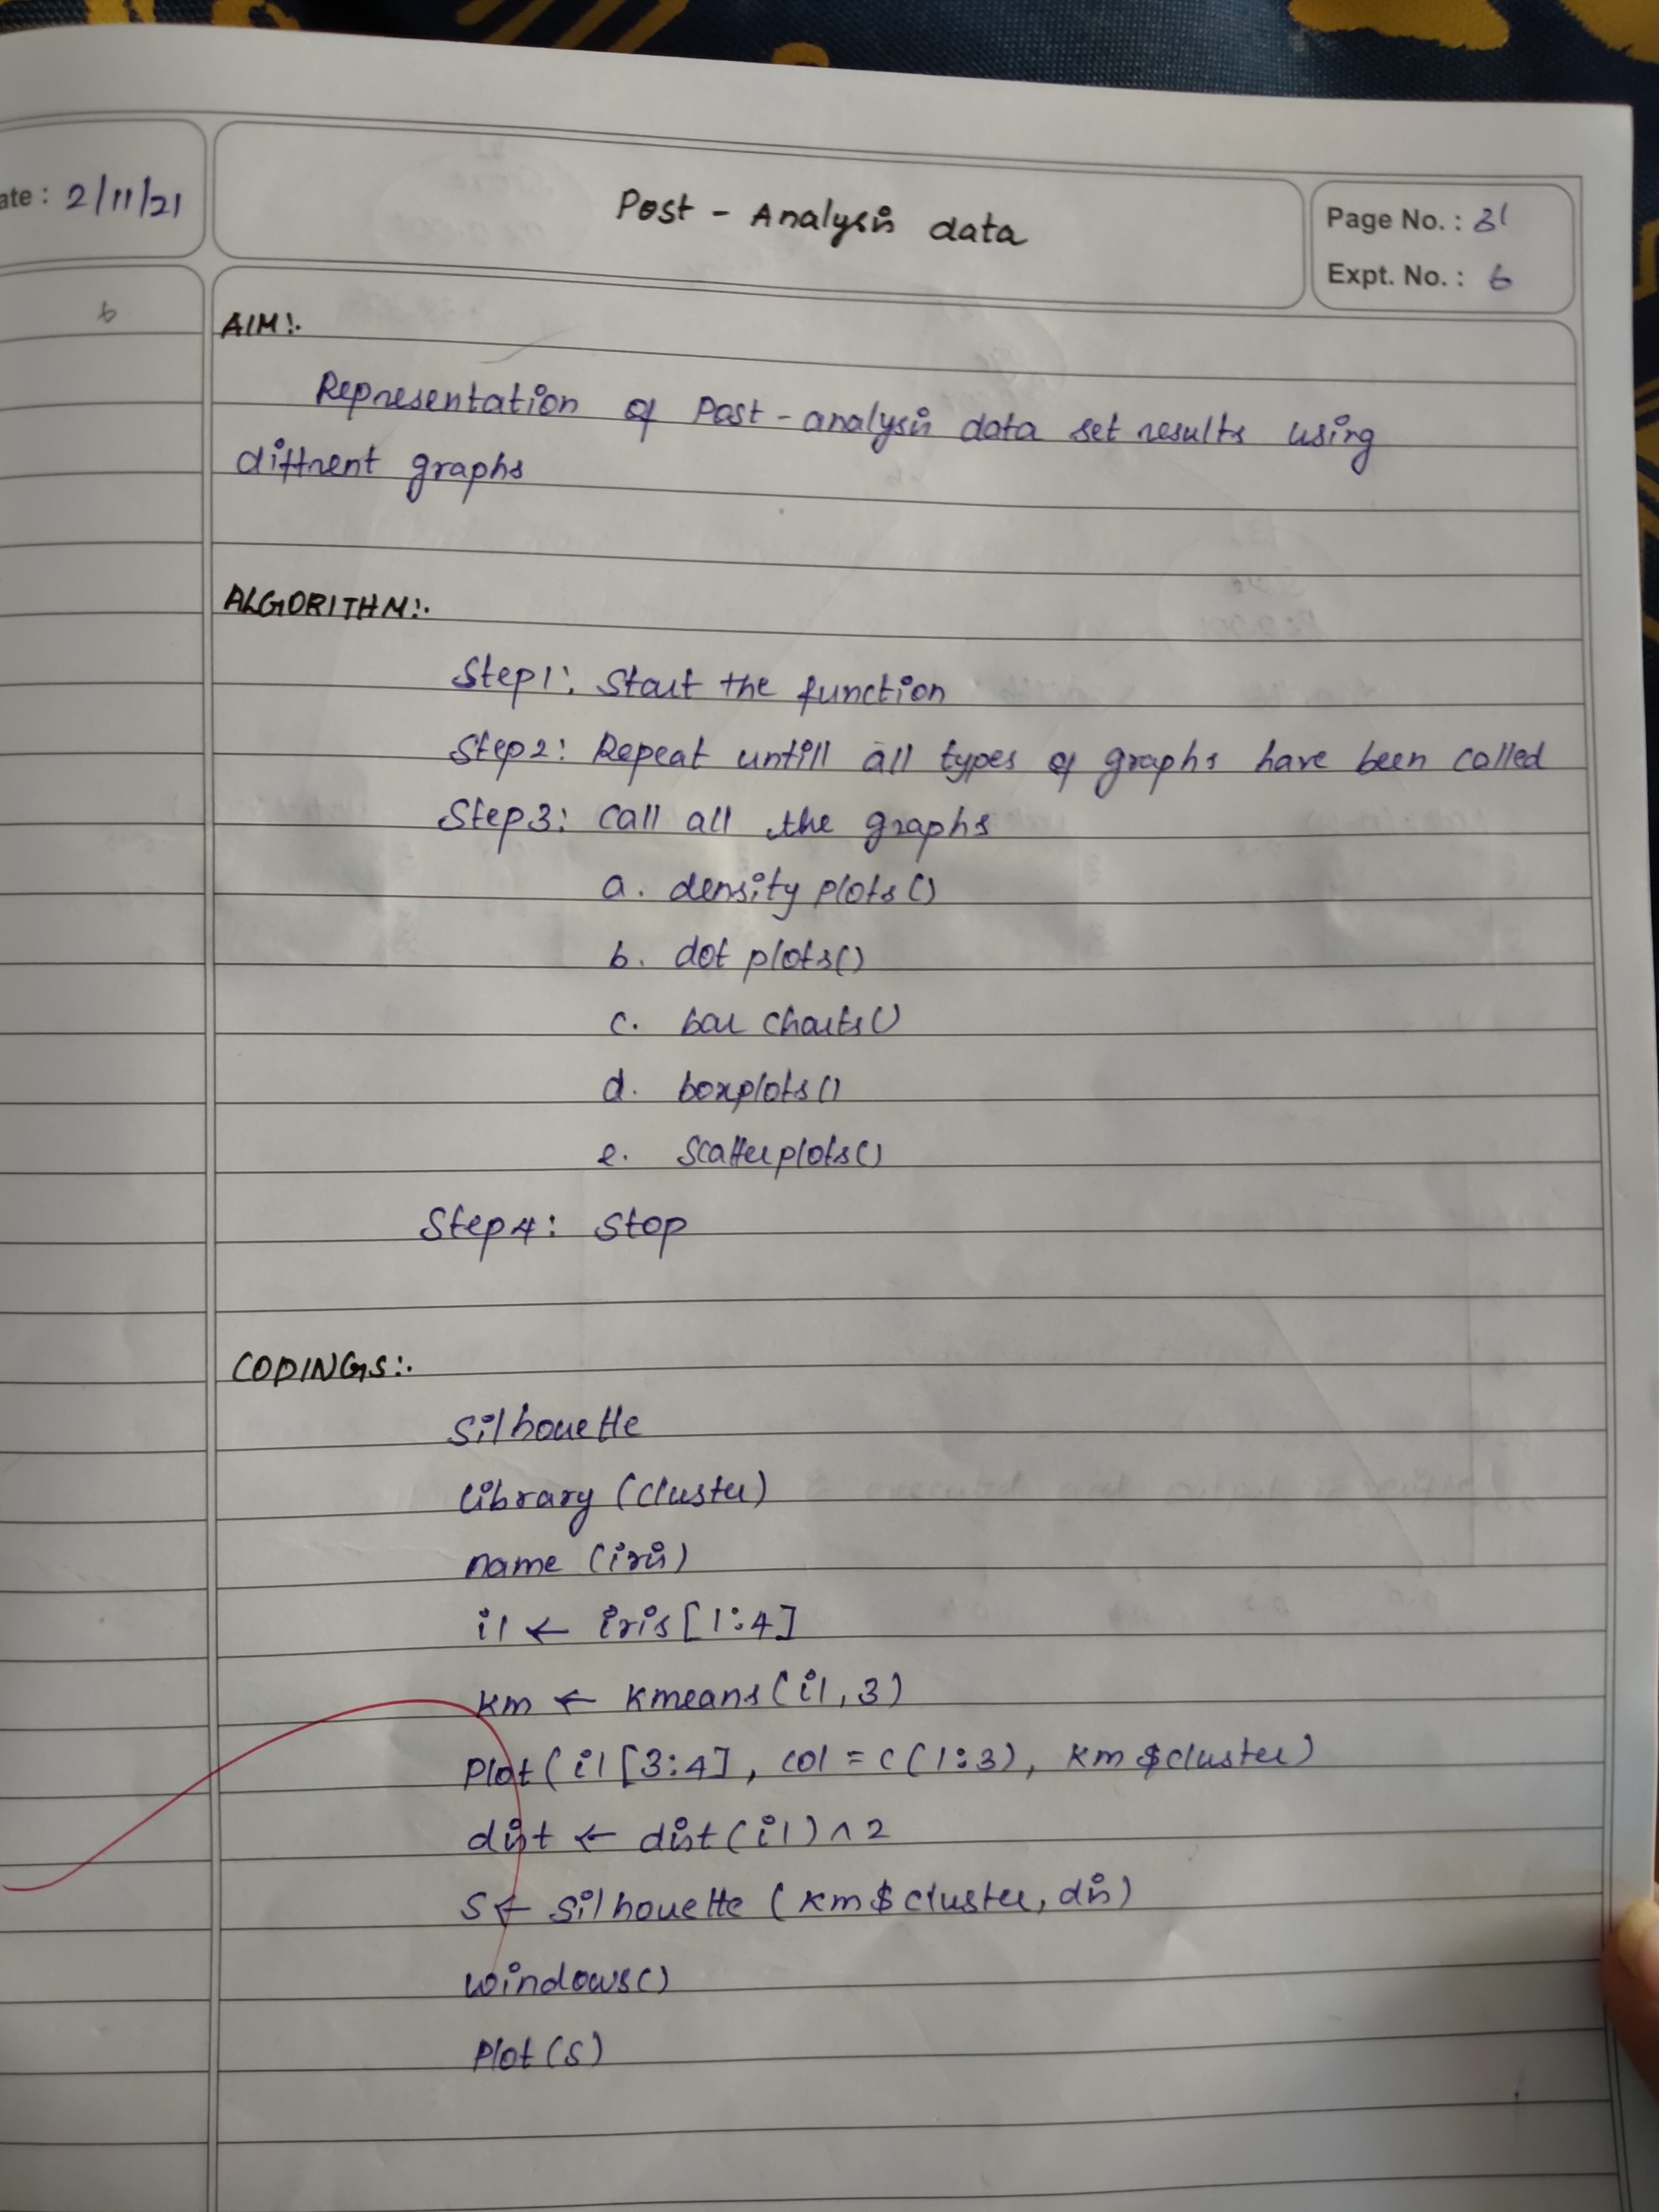 ate : 2/11/21
Post - Analysis data
Page No. : 31
Expt. No. : 6
6
AIM:.
Representation of Post - analysis data set results using
diffrent graphs
ALGORITHM:.
Step1: Start the function
Step2: Repeat untill all types of graphs have been called
Step3: Call all the graphs
a. density plots ()
b. dot plots()
c. bar charts()
d. boxplots()
e. Scatterplots()
Step4: Stop
CODINGS:.
Silhouette
library (cluster)
name (iris)
i1 ← iris [1:4]
km ← kmeans (i1, 3)
Plot ( i1 [3:4], col = c (1:3), km $cluster)
dist ← dist (i1) ^ 2
S ← Silhouette ( km $ cluster, dis)
windows()
Plot (S)